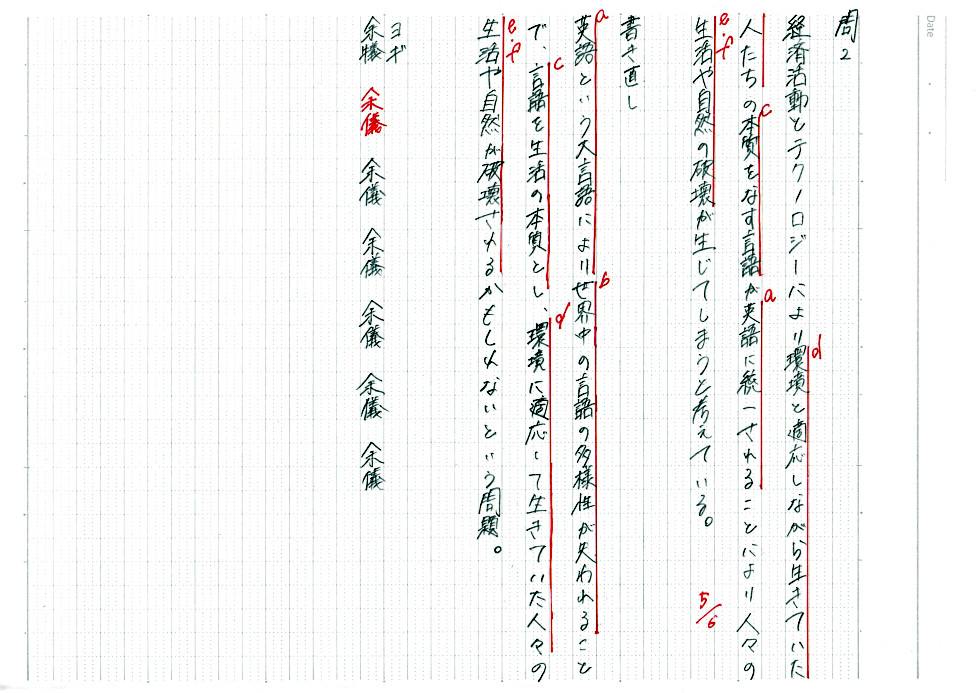 Date
問2
経済活動とテクノロジーにより環境と適応しながら生きていた
人たちの本質をなす言語が英語に統一されることにより人々の
生活や自然の破壊が生じてしまうと考えている。
d
c
a
e.f
5/6
書き直し
英語という大言語により世界中の言語の多様性が失われること
で、言語を生活の本質とし、環境に適応して生きていた人々の
生活や自然が破壊されるかもしれないという問題。
a
b
c
d
e.f
ヨギ
余儀 余儀 余儀 余儀 余儀 余儀